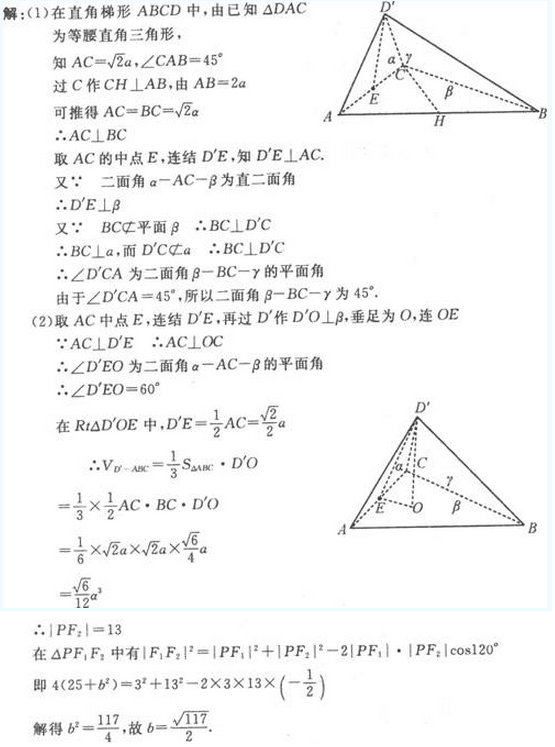 解:(1)在直角梯形 ABCD 中,由已知 △DAC
为等腰直角三角形,
知 AC=√2a,∠CAB=45°
过 C 作 CH⊥AB,由 AB=2a
可推得 AC=BC=√2a
∴AC⊥BC
取 AC 的中点 E,连结 D′E,知 D′E⊥AC.
又∵ 二面角 α-AC-β 为直二面角
∴D′E⊥β
又∵ BC⊄平面 β ∴BC⊥D′C
∴BC⊥a,而 D′C⊄a ∴BC⊥D′C
∴∠D′CA 为二面角 β-BC-γ 的平面角
由于∠D′CA=45°,所以二面角 β-BC-γ 为 45°.
D′
α γ
C
E β
A H B
(2)取 AC 中点 E,连结 D′E,再过 D′作 D′O⊥β,垂足为 O,连 OE
∵AC⊥D′E ∴AC⊥OC
∴∠D′EO 为二面角 α-AC-β 的平面角
∴∠D′EO=60°
在 Rt△D′OE 中,D′E=1/2 AC=√2/2 a
∴V_{D′-ABC}=1/3 S_{△ABC}·D′O
=1/3×1/2 AC·BC·D′O
=1/6×√2a×√2a×√6/4 a
=√6/12 a³
D′
α C
γ
E O β
A B
∴|PF₂|=13
在 △PF₁F₂ 中有|F₁F₂|²=|PF₁|²+|PF₂|²-2|PF₁|·|PF₂|cos120°
即 4(25+b²)=3²+13²-2×3×13×(-1/2)
解得 b²=117/4,故 b=√117/2.